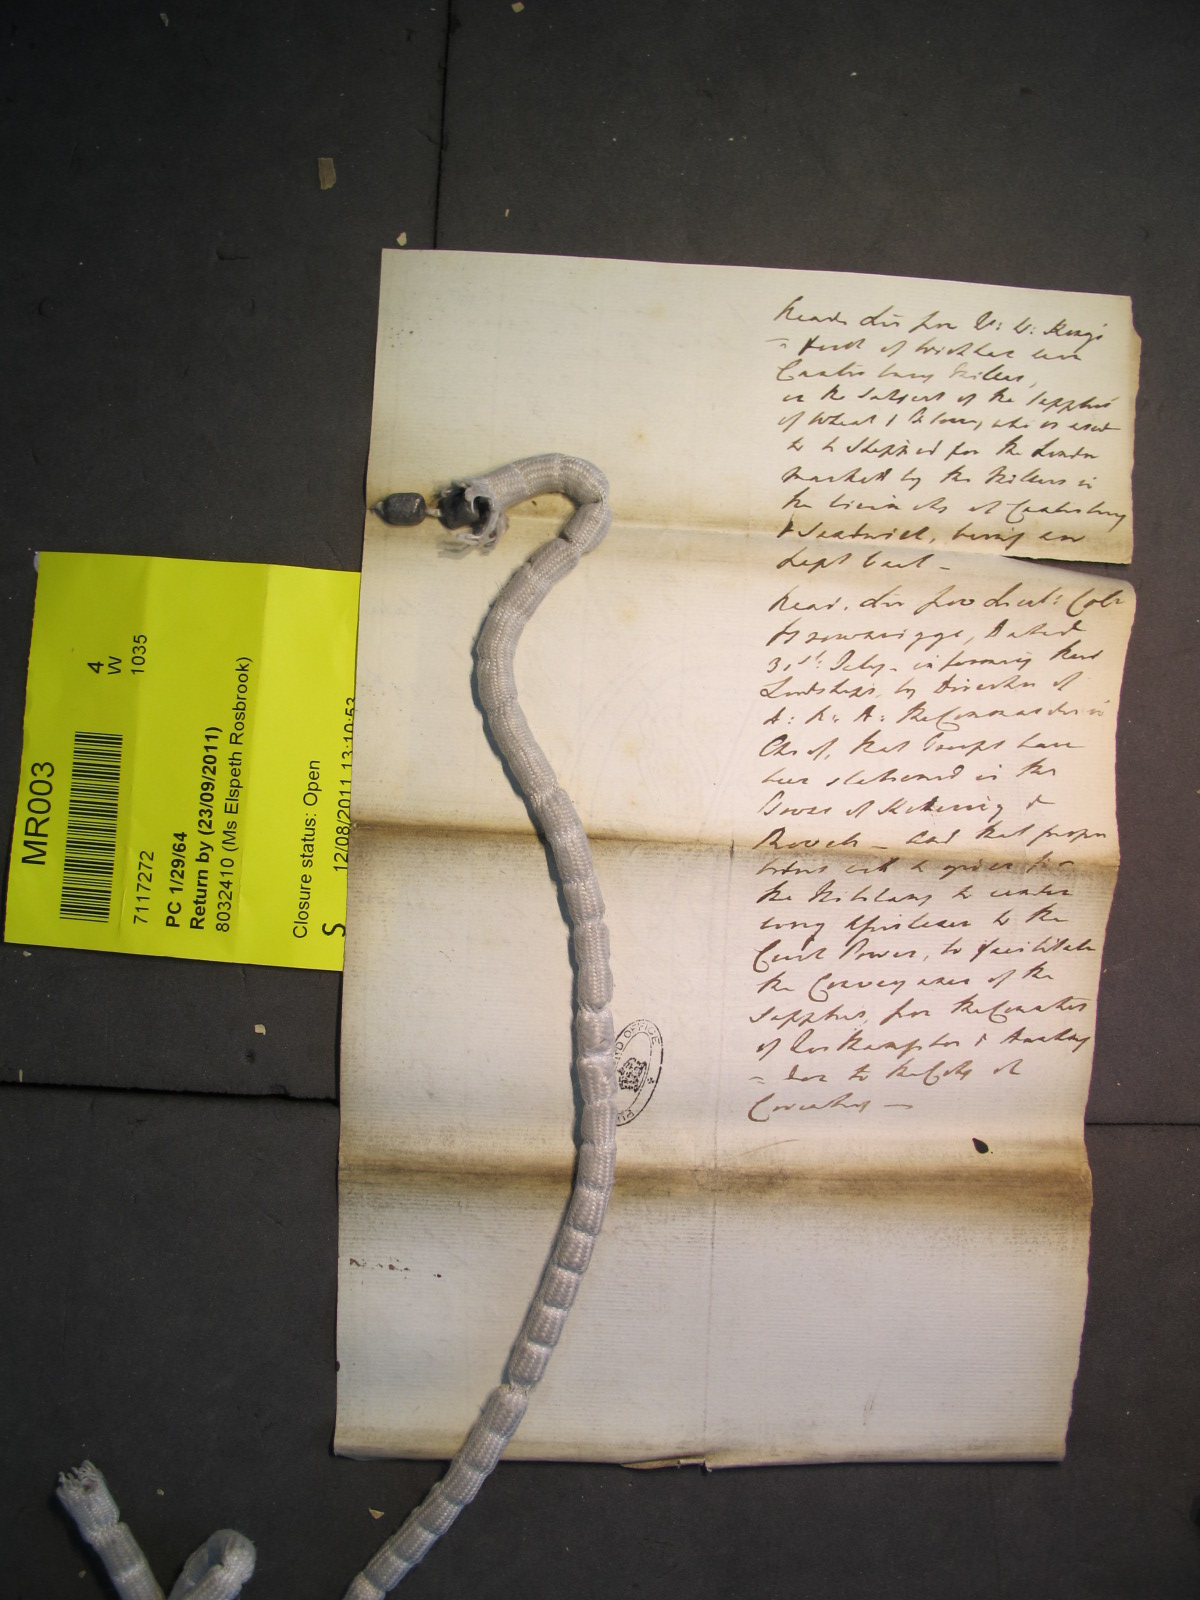 MR003
4
W
1035
7117272
PC 1/29/64
Return by (23/09/2011)
8032410 (Ms Elspeth Rosbrook)
Closure status: Open
S
12/08/2011 13:10:53
Read. Lre from
of
Canterbury Miller,
on the Subject of the Supplies
of Wheat & Flour, which used
to be Shipped for the London
market by the Millers in
the vicinity of Canterbury
& Sandwich, being now
kept back –
Read. Lre from Lieut: Coll
Brownrigge, dated
31st: July – informing their
Lordships, by Direction of
H: R: H: the Commander in
Chief, that Troops have
been stationed in the
Towns of Kettering &
Rowell – and that proper
orders will be given for
the Military to render
every Assistance to the
Civil Power, to facilitate
the Conveyance of the
Supplies, for the Counties
of Northampton &
to the City of
Coventry –
OFFICE